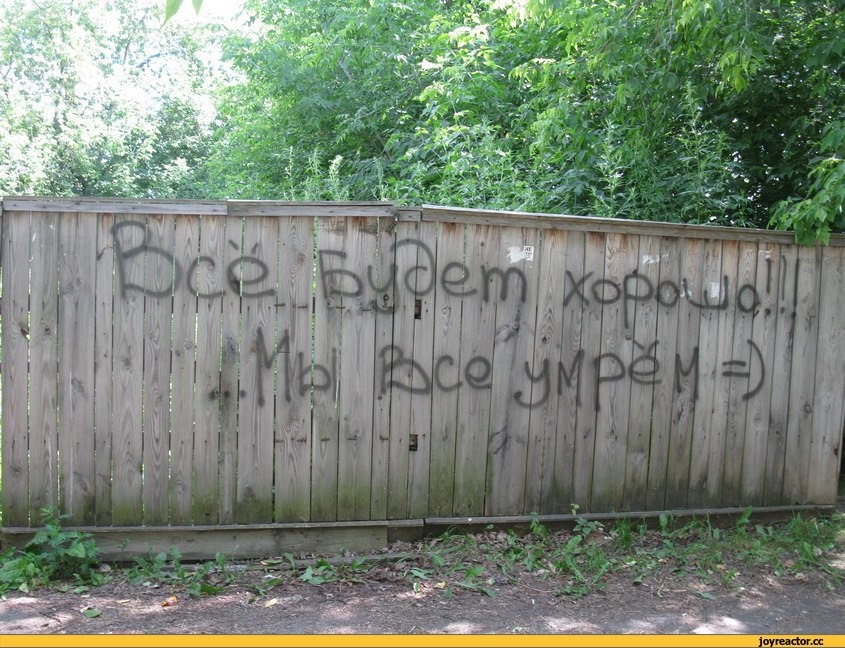 Всё Будет хорошо!!!
..Мы все умрём =)
joyreactor.cc